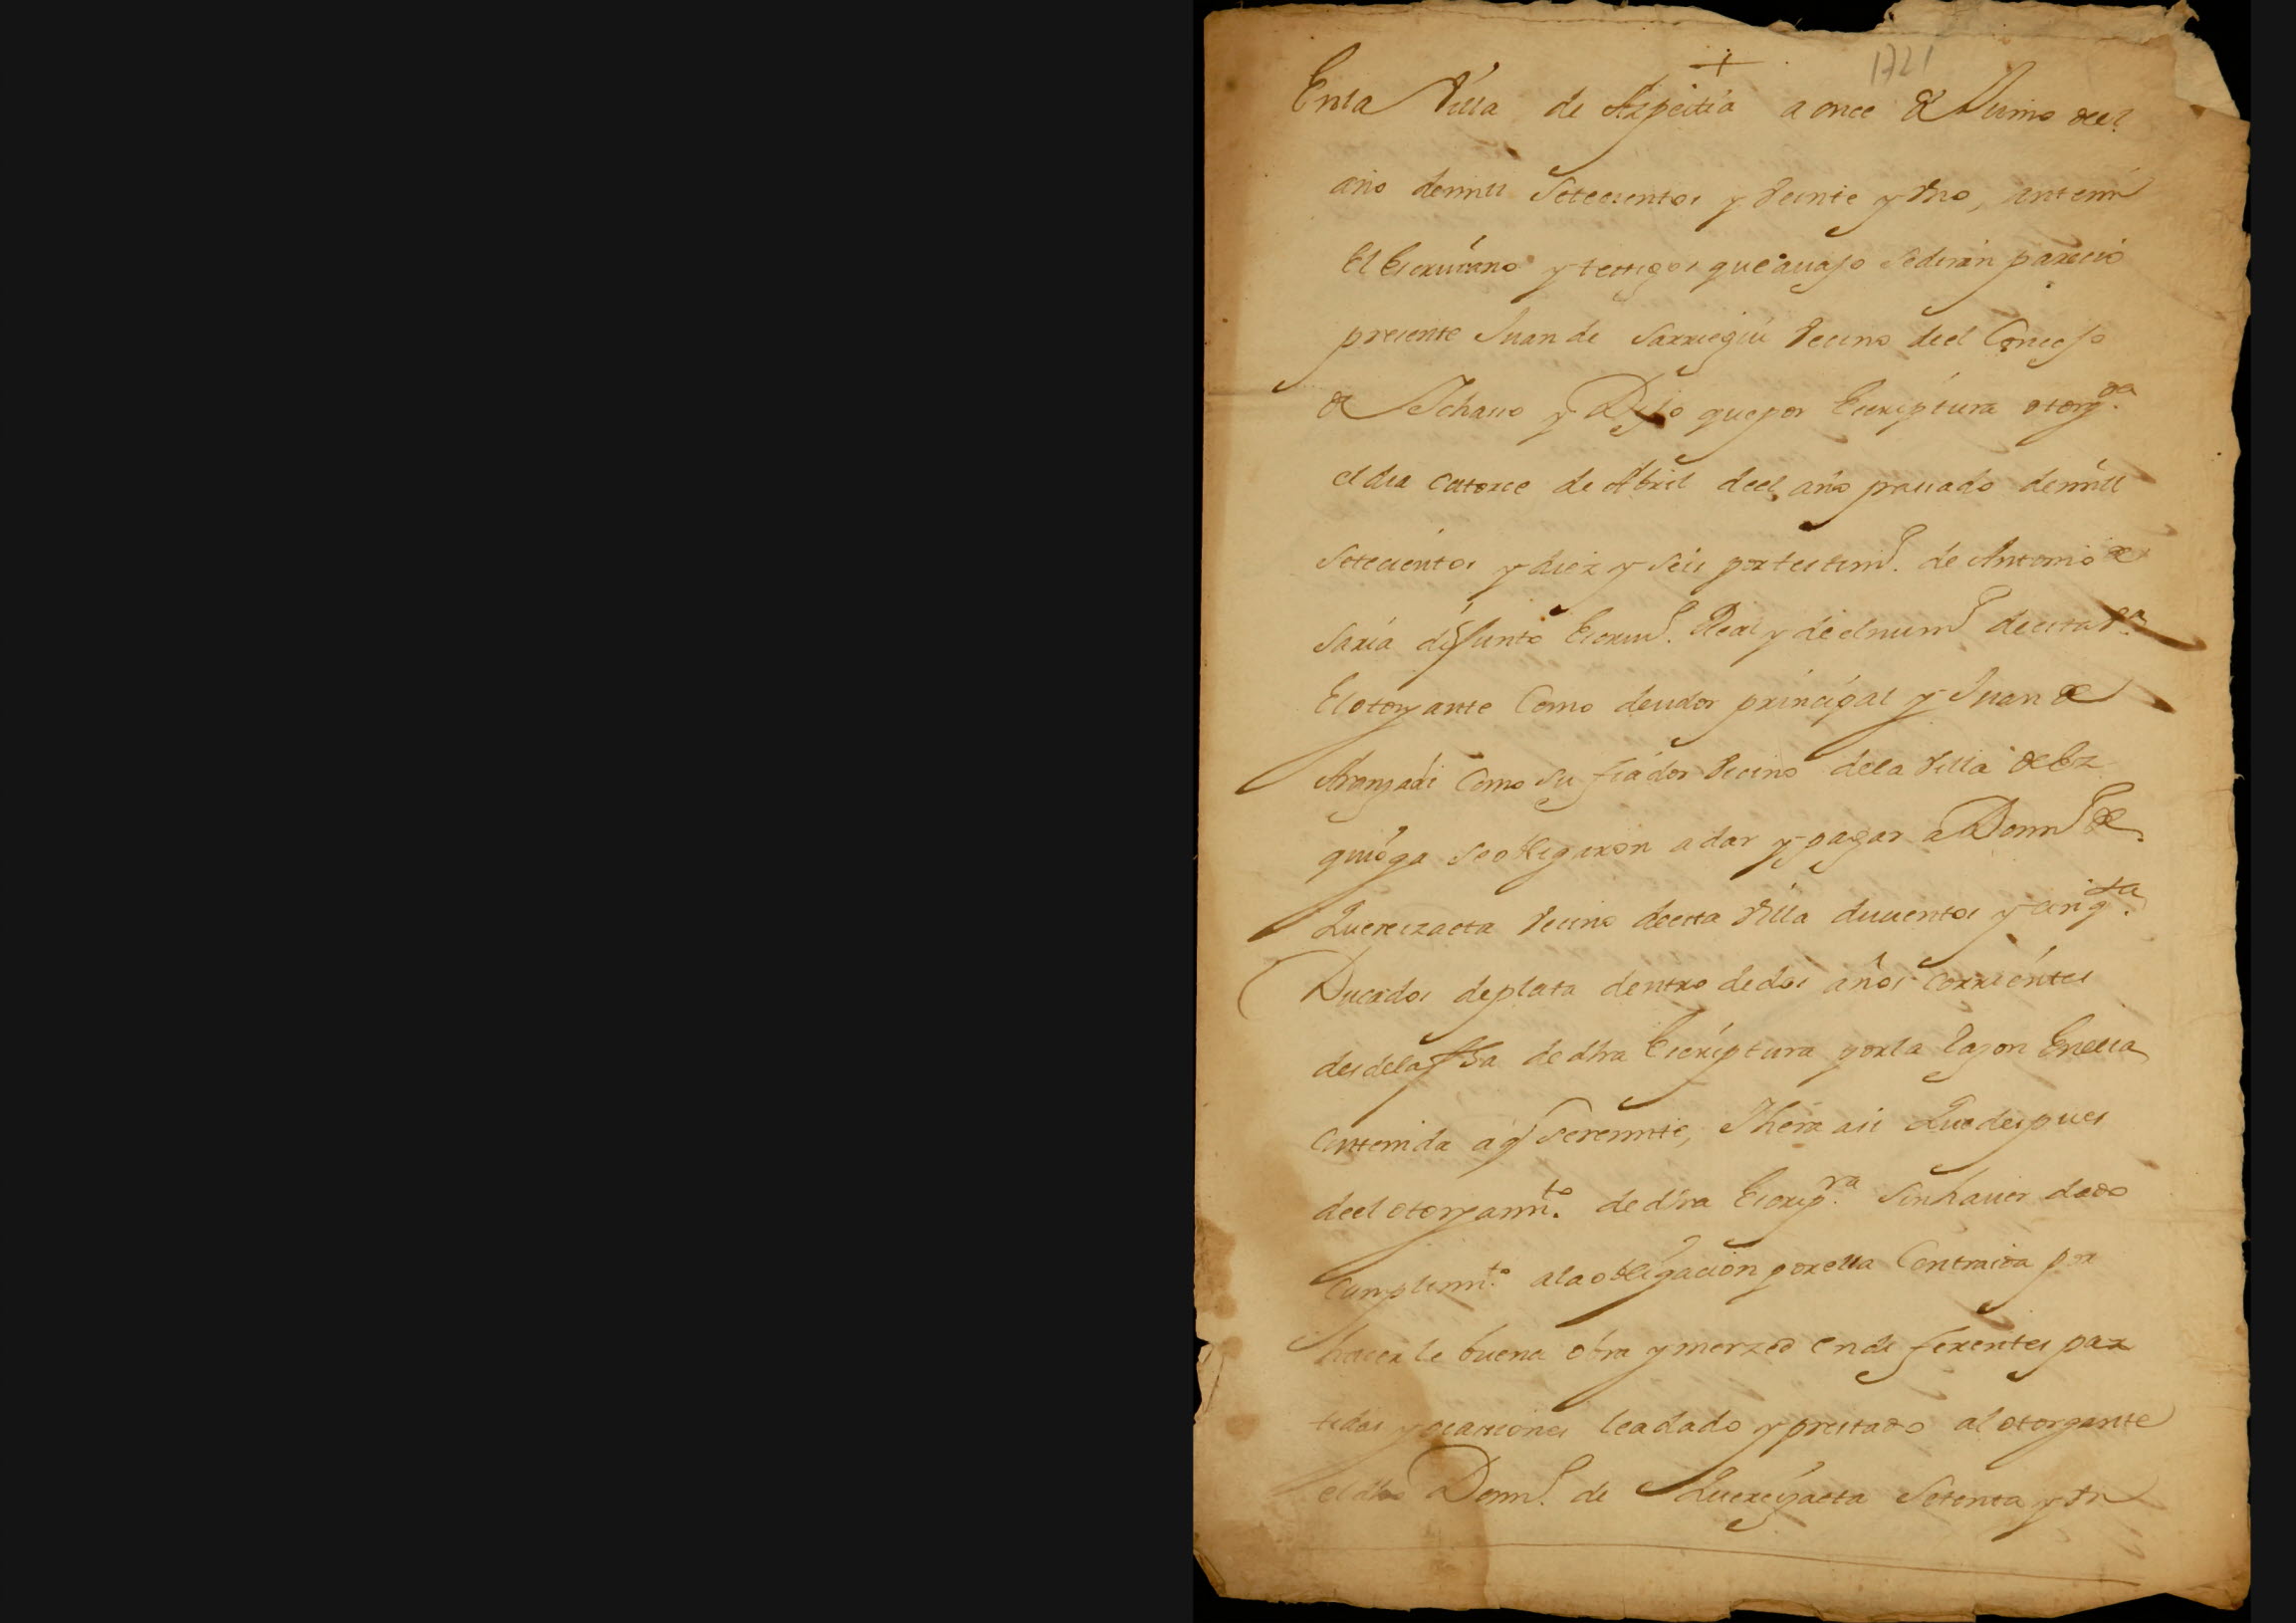 +
1721
En la Villa de Azpeitia a once de Junio deel
año de mill Setecientos y Veinte y Vno, ante mi
el Escriuano y testigos que auajo se diran parecio
presente Juan de Sarriegui Vecino deel Concejo
de Ichaso y Dijo que por Escriptura otorg.da
el dia catorce de Abril deel año passado de mill
Setecientos y diez y seis por testim.o de Antonio de
Saria difunto Escriu.o Real y de el num.o de esta V.a
El otorgante Como deudor principal y Juan de
Aranzadi Como su fiador Vecino de la Villa de Ez
quioga se obligaron a dar y pagar a Dom.o de
Querexazeta Vecino de esta Villa ducientos y cinq.ta
Ducados de plata dentro de dos años corrientes
desde la fha de dha Escriptura por la Razon En ella
Contenida a q se remite, Y hera asi Que despues
deel otorgam.to de dha Escrip.ra Sin hauer dado
Cumplim.to a la obligacion por ella Contraida por
hacerle buena obra y merzed en diferentes par
tidas y ocasiones le a dado y prestado al otorgante
el dho Dom.o de Querexazeta Setenta y